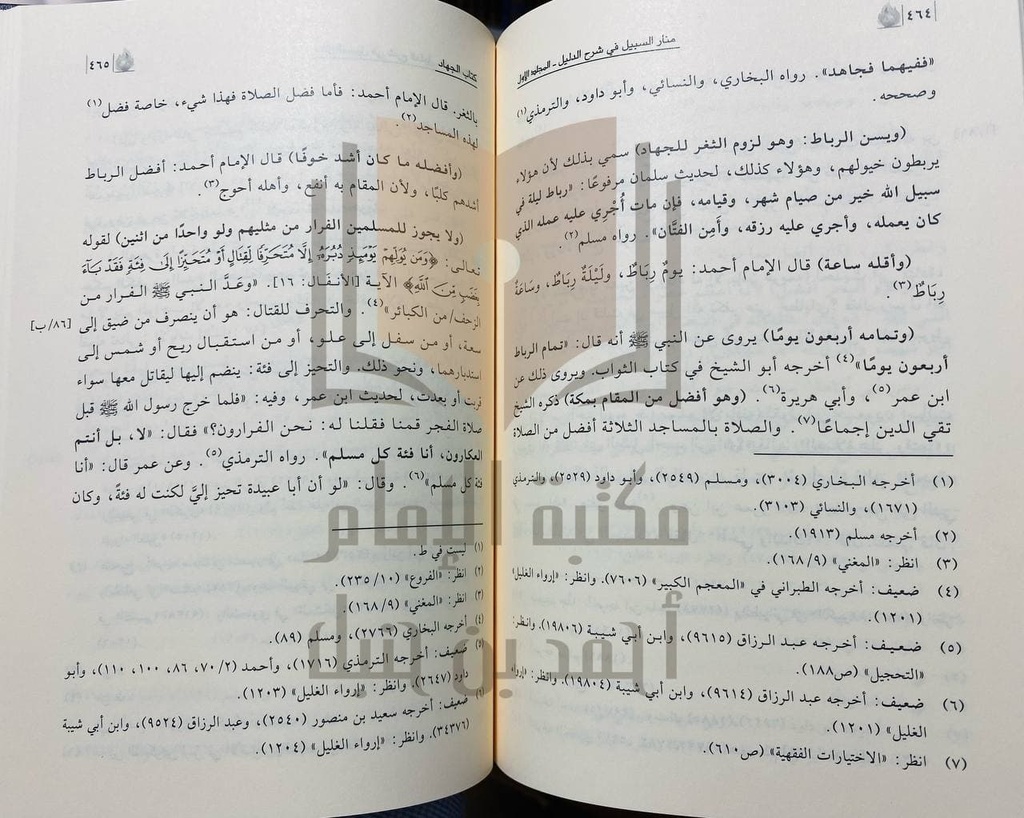 ٤٦٤
منار السبيل في شرح الدليل - المجلد الأول
«ففيهما فجاهد». رواه البخاري، والنسائي، وأبو داود، والترمذي(١)
وصححه.
(ويسن الرباط: وهو لزوم الثغر للجهاد) سمي بذلك لأن هؤلاء
يربطون خيولهم، وهؤلاء كذلك، لحديث سلمان مرفوعًا: «رباط ليلة في
سبيل الله خير من صيام شهر، وقيامه، فإن مات أُجْرِي عليه عمله الذي
كان يعمله، وأجري عليه رزقه، وأَمِن الفتَّان». رواه مسلم(٢).
(وأقله ساعة) قال الإمام أحمد: يومٌ رِبَاطٌ، ولَيْلَةٌ رِبَاطٌ، وسَاعَةٌ
رِبَاطٌ(٣).
(وتمامه أربعون يومًا) يروى عن النبي ﷺ أنه قال: «تمام الرباط
أربعون يومًا»(٤) أخرجه أبو الشيخ في كتاب الثواب. ويروى ذلك عن
ابن عمر(٥)، وأبي هريرة(٦). (وهو أفضل من المقام بمكة) ذكره الشيخ
تقي الدين إجماعًا(٧). والصلاة بالمساجد الثلاثة أفضل من الصلاة
(١) أخرجه البخاري (٣٠٠٤)، ومسلم (٢٥٤٩)، وأبو داود (٢٥٢٩)، والترمذي
(١٦٧١)، والنسائي (٣١٠٣).
(٢) أخرجه مسلم (١٩١٣).
(٣) انظر: «المغني» (٩/ ١٦٨).
(٤) ضعيف: أخرجه الطبراني في «المعجم الكبير» (٧٦٠٦). وانظر: «إرواء الغليل»
(١٢٠١).
(٥) ضعيف: أخرجه عبد الرزاق (٩٦١٥)، وابن أبي شيبة (١٩٨٠٦). وانظر:
«التحجيل» (ص١٨٨).
(٦) ضعيف: أخرجه عبد الرزاق (٩٦١٤)، وابن أبي شيبة (١٩٨٠٤). وانظر: «إرواء
الغليل» (١٢٠١).
(٧) انظر: «الاختيارات الفقهية» (ص٦١٠).
كتاب الجهاد
٤٦٥
بالثغر. قال الإمام أحمد: فأما فضل الصلاة فهذا شيء، خاصة فضل(١)
لهذه المساجد(٢).
(وأفضله ما كان أشد خوفًا) قال الإمام أحمد: أفضل الرباط
أشدهم كلبًا، ولأن المقام به أنفع، وأهله أحوج(٣).
(ولا يجوز للمسلمين الفرار من مثليهم ولو واحدًا من اثنين) لقوله
تعالى: ﴿وَمَن يُوَلِّهِمْ يَوْمَئِذٍ دُبُرَهُ إِلَّا مُتَحَرِّفًا لِقِتَالٍ أَوْ مُتَحَيِّزًا إِلَى فِئَةٍ فَقَدْ بَاءَ
بِغَضَبٍ مِنَ اللَّهِ﴾ الآية [الأنفال: ١٦]. «وعَدَّ النبي ﷺ الفرار من
الزحف/ من الكبائر»(٤). والتحرف للقتال: هو أن ينصرف من ضيق إلى [٨٦/ب]
سعة، أو من سفل إلى علو، أو من استقبال ريح أو شمس إلى
استدبارهما، ونحو ذلك. والتحيز إلى فئة: ينضم إليها ليقاتل معها سواء
قربت أو بعدت، لحديث ابن عمر، وفيه: «فلما خرج رسول الله ﷺ قبل
صلاة الفجر قمنا فقلنا له: نحن الفرارون؟» فقال: «لا، بل أنتم
العكارون، أنا فئة كل مسلم». رواه الترمذي(٥). وعن عمر قال: «أنا
فئة كل مسلم»(٦). وقال: «لو أن أبا عبيدة تحيز إليَّ لكنت له فئةً، وكان
(١) ليست في ط.
(٢) انظر: «الفروع» (١٠/ ٢٣٥).
(٣) انظر: «المغني» (٩/ ١٦٨).
(٤) أخرجه البخاري (٢٧٦٦)، ومسلم (٨٩).
(٥) ضعيف: أخرجه الترمذي (١٧١٦)، وأحمد (٢/ ٧٠، ٨٦، ١٠٠، ١١٠)، وأبو
داود (٢٦٤٧). وانظر: «إرواء الغليل» (١٢٠٣).
(٦) ضعيف: أخرجه سعيد بن منصور (٢٥٤٠)، وعبد الرزاق (٩٥٢٤)، وابن أبي شيبة
(٣٤٣٧٦). وانظر: «إرواء الغليل» (١٢٠٤).
مكتبة الإمام
أحمد بن حنبل